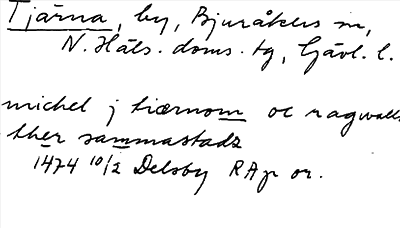 Tjärna, by, Bjuråkers sn,
N. Häls. doms. tg, Gävl. l.
michel j tiærnom oc ragwalt
ther sammastadz
1474 10/2 Delsby RAp or.